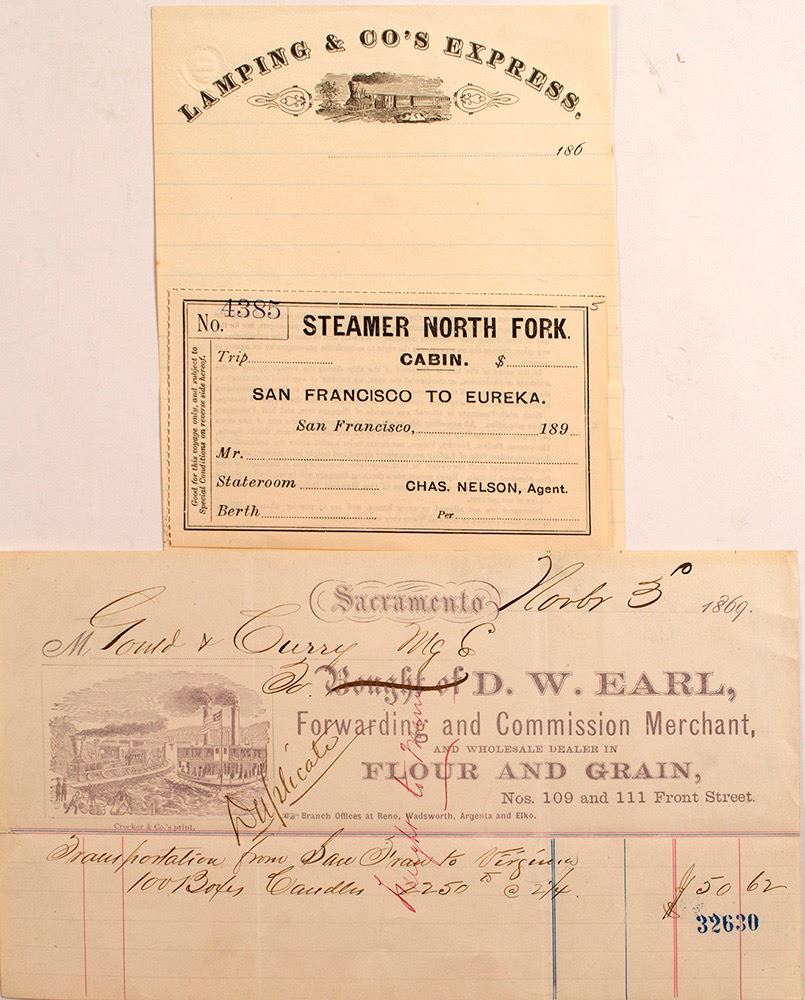 LAMPING & CO'S EXPRESS,
186
5
No. 4385
STEAMER NORTH FORK.
Good for this voyage only, and subject to
Special Conditions on reverse side hereof.
Trip CABIN. $
SAN FRANCISCO TO EUREKA.
San Francisco, 189
Mr.
Stateroom CHAS. NELSON, Agent.
Berth Per
Sacramento Novbr 3d 1869.
M Gould & Curry Mg C
To Bought of D. W. EARL,
Forwarding and Commission Merchant,
AND WHOLESALE DEALER IN
FLOUR AND GRAIN,
Nos. 109 and 111 Front Street.
Branch Offices at Reno, Wadsworth, Argenta and Elko.
Crocker & Co.'s print.
Duplicate
Freight to
Transportation from San Fran to Virginia
100 Boxes Candles 2250 @ 2¼ $50 62
32630